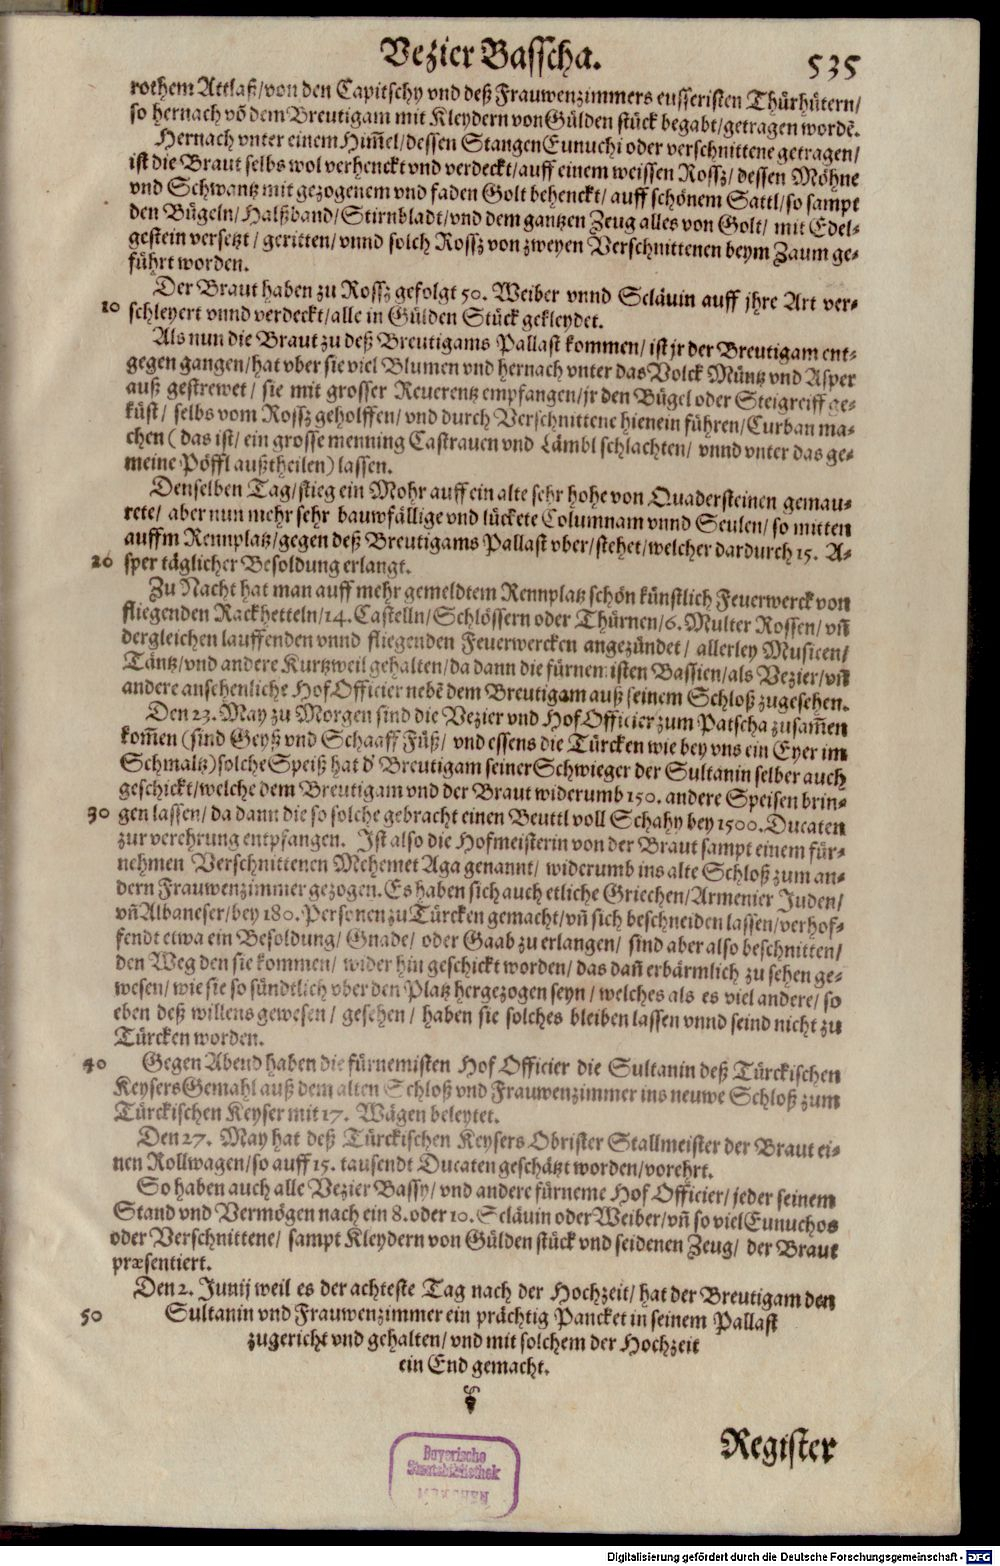 Vezier Basscha. 535
rothem Attlaß/von den Capitschy vnd deß Frauwenzimmers eusseristen Thürhütern/
so hernach võ dem Breutigam mit Kleydern von Gülden stück begabt/getragen wordẽ.
Hernach vnter einem Him̃el/dessen Stangen Eunuchi oder verschnittene getragen/
ist die Braut selbs wol verhenckt vnd verdeckt/auff einem weissen Rossz/dessen Möhne
vnd Schwantz mit gezogenem vnd faden Golt behenckt/ auff schönem Sattl/so sampt
den Bügeln/Halßband/Stirnbladt/vnd dem gantzen Zeug alles von Golt/ mit Edel-
gestein versetzt/ geritten/vnnd solch Rossz von zweyen Verschnittenen beym Zaum ge-
führt worden.
Der Braut haben zu Rossz gefolgt 50. Weiber vnnd Scläuin auff jhre Art ver-
10 schleyert vnnd verdeckt/alle in Gülden Stück gekleydet.
Als nun die Braut zu deß Breutigams Pallast kommen/ist jr der Breutigam ent-
gegen gangen/hat vber sie viel Blumen vnd hernach vnter das Volck Müntz vnd Asper
auß gestrewet/ sie mit grosser Reuerentz empfangen/jr den Bügel oder Steigreiff ge-
küst/ selbs vom Rossz geholffen/vnd durch Verschnittene hienein führen/Curban ma-
chen (das ist/ein grosse menning Castrauen vnd Lämbl schlachten/ vnnd vnter das ge-
meine Pöffl außtheilen) lassen.
Denselben Tag/stieg ein Mohr auff ein alte sehr hohe von Quadersteinen gemau-
rete/ aber nun mehr sehr bauwfällige vnd lückete Columnam vnnd Seulen/so mitten
auffm Rennplatz/gegen deß Breutigams Pallast vber/stehet/welcher dardurch 15. A-
20 sper täglicher Besoldung erlangt.
Zu Nacht hat man auff mehr gemeldtem Rennplatz schön künstlich Feuerwerck von
fliegenden Rackhetteln/14. Castelln/Schlössern oder Thürnen/6. Multer Rossen/vñ
dergleichen lauffenden vnnd fliegenden Feuerwercken angezündet/ allerley Musicen/
Täntz/vnd andere Kurtzweil gehalten/da dann die fürnemisten Bassien/als Vezier/vñ
andere ansehenliche Hof Officier nebẽ dem Breutigam auß seinem Schloß zugesehen.
Den 23. May zu Morgen sind die Vezier vnd Hof Officier zum Patscha zusam̃en
kom̃en (sind Geyß vnd Schaaff Füß/ vnd essens die Türcken wie bey vns ein Eyer im
Schmaltz) solche Speiß hat d' Breutigam seiner Schwieger der Sultanin selber auch
geschickt/welche dem Breutigam vnd der Braut widerumb 150. andere Speisen brin-
30 gen lassen/da dann die so solche gebracht einen Beuttl voll Schahy bey 1500. Ducaten
zur verehrung entpfangen. Ist also die Hofmeisterin von der Braut sampt einem für-
nehmen Verschnittenen Mehemet Aga genannt/ widerumb ins alte Schloß zum an-
dern Frauwenzimmer gezogen. Es haben sich auch etliche Griechen/Armenier Juden/
vñ Albaneser/bey 180. Personen zu Türcken gemacht/vñ sich beschneiden lassen/verhof-
fendt etwa ein Besoldung/ Gnade/ oder Gaab zu erlangen/ sind aber also beschnitten/
den Weg den sie kommen/ wider hin geschickt worden/das dañ erbärmlich zu sehen ge-
wesen/wie sie so sündtlich vber den Platz hergezogen seyn/welches als es viel andere/so
eben deß willens gewesen/ gesehen/ haben sie solches bleiben lassen vnnd seind nicht zu
Türcken worden.
40 Gegen Abend haben die fürnemisten Hof Officier die Sultanin deß Türckischen
Keysers Gemahl auß dem alten Schloß vnd Frauwenzimmer ins neuwe Schloß zum
Türckischen Keyser mit 17. Wägen beleytet.
Den 27. May hat deß Türckischen Keysers Obrister Stallmeister der Braut ei-
nen Rollwagen/so auff 15. tausendt Ducaten geschätzt worden/vorehrt.
So haben auch alle Vezier Bassy/vnd andere fürneme Hof Officier/jeder seinem
Stand vnd Vermögen nach ein 8. oder 10. Scläuin oder Weiber/vñ so viel Eunuchos
oder Verschnittene/ sampt Kleydern von Gülden stück vnd seidenen Zeug/ der Braut
præsentiert.
Den 2. Junij weil es der achteste Tag nach der Hochzeit/hat der Breutigam den
50 Sultanin vnd Frauwenzimmer ein prächtig Pancket in seinem Pallast
zugericht vnd gehalten/vnd mit solchem der Hochzeit
ein End gemacht.
Register
Bayerische
Staatsbibliothek
MÜNCHEN
Digitalisierung gefördert durch die Deutsche Forschungsgemeinschaft - DFG